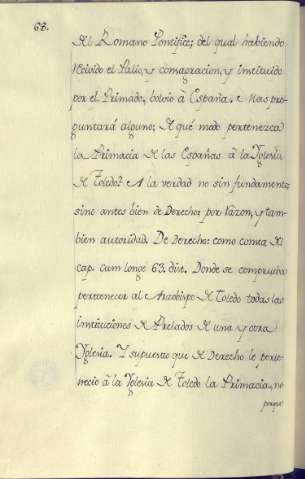 68.
del Romano Pontifice; del qual habiendo
recivido el Palio, y consagracion, y instituido
por el Primado, bolvio à España. Mas pre-
guntarà alguno; de què modo pertenezca
la Primacia de las Españas à la Yglesia
de Toledo? A la verdad no sin fundamento;
sino antes bien de Derecho; por razon, y tam-
bien autoridad. De Derecho: como consta del
cap. cum longe 63. dist. Donde se comprueba
pertenecer al Arzobispo de Toledo todas las
instituciones de Prelados de una y otra
Yglesia. Y supuesto que de Derecho le perte-
neciò à la Yglesia de Toledo la Primacia, no
porque